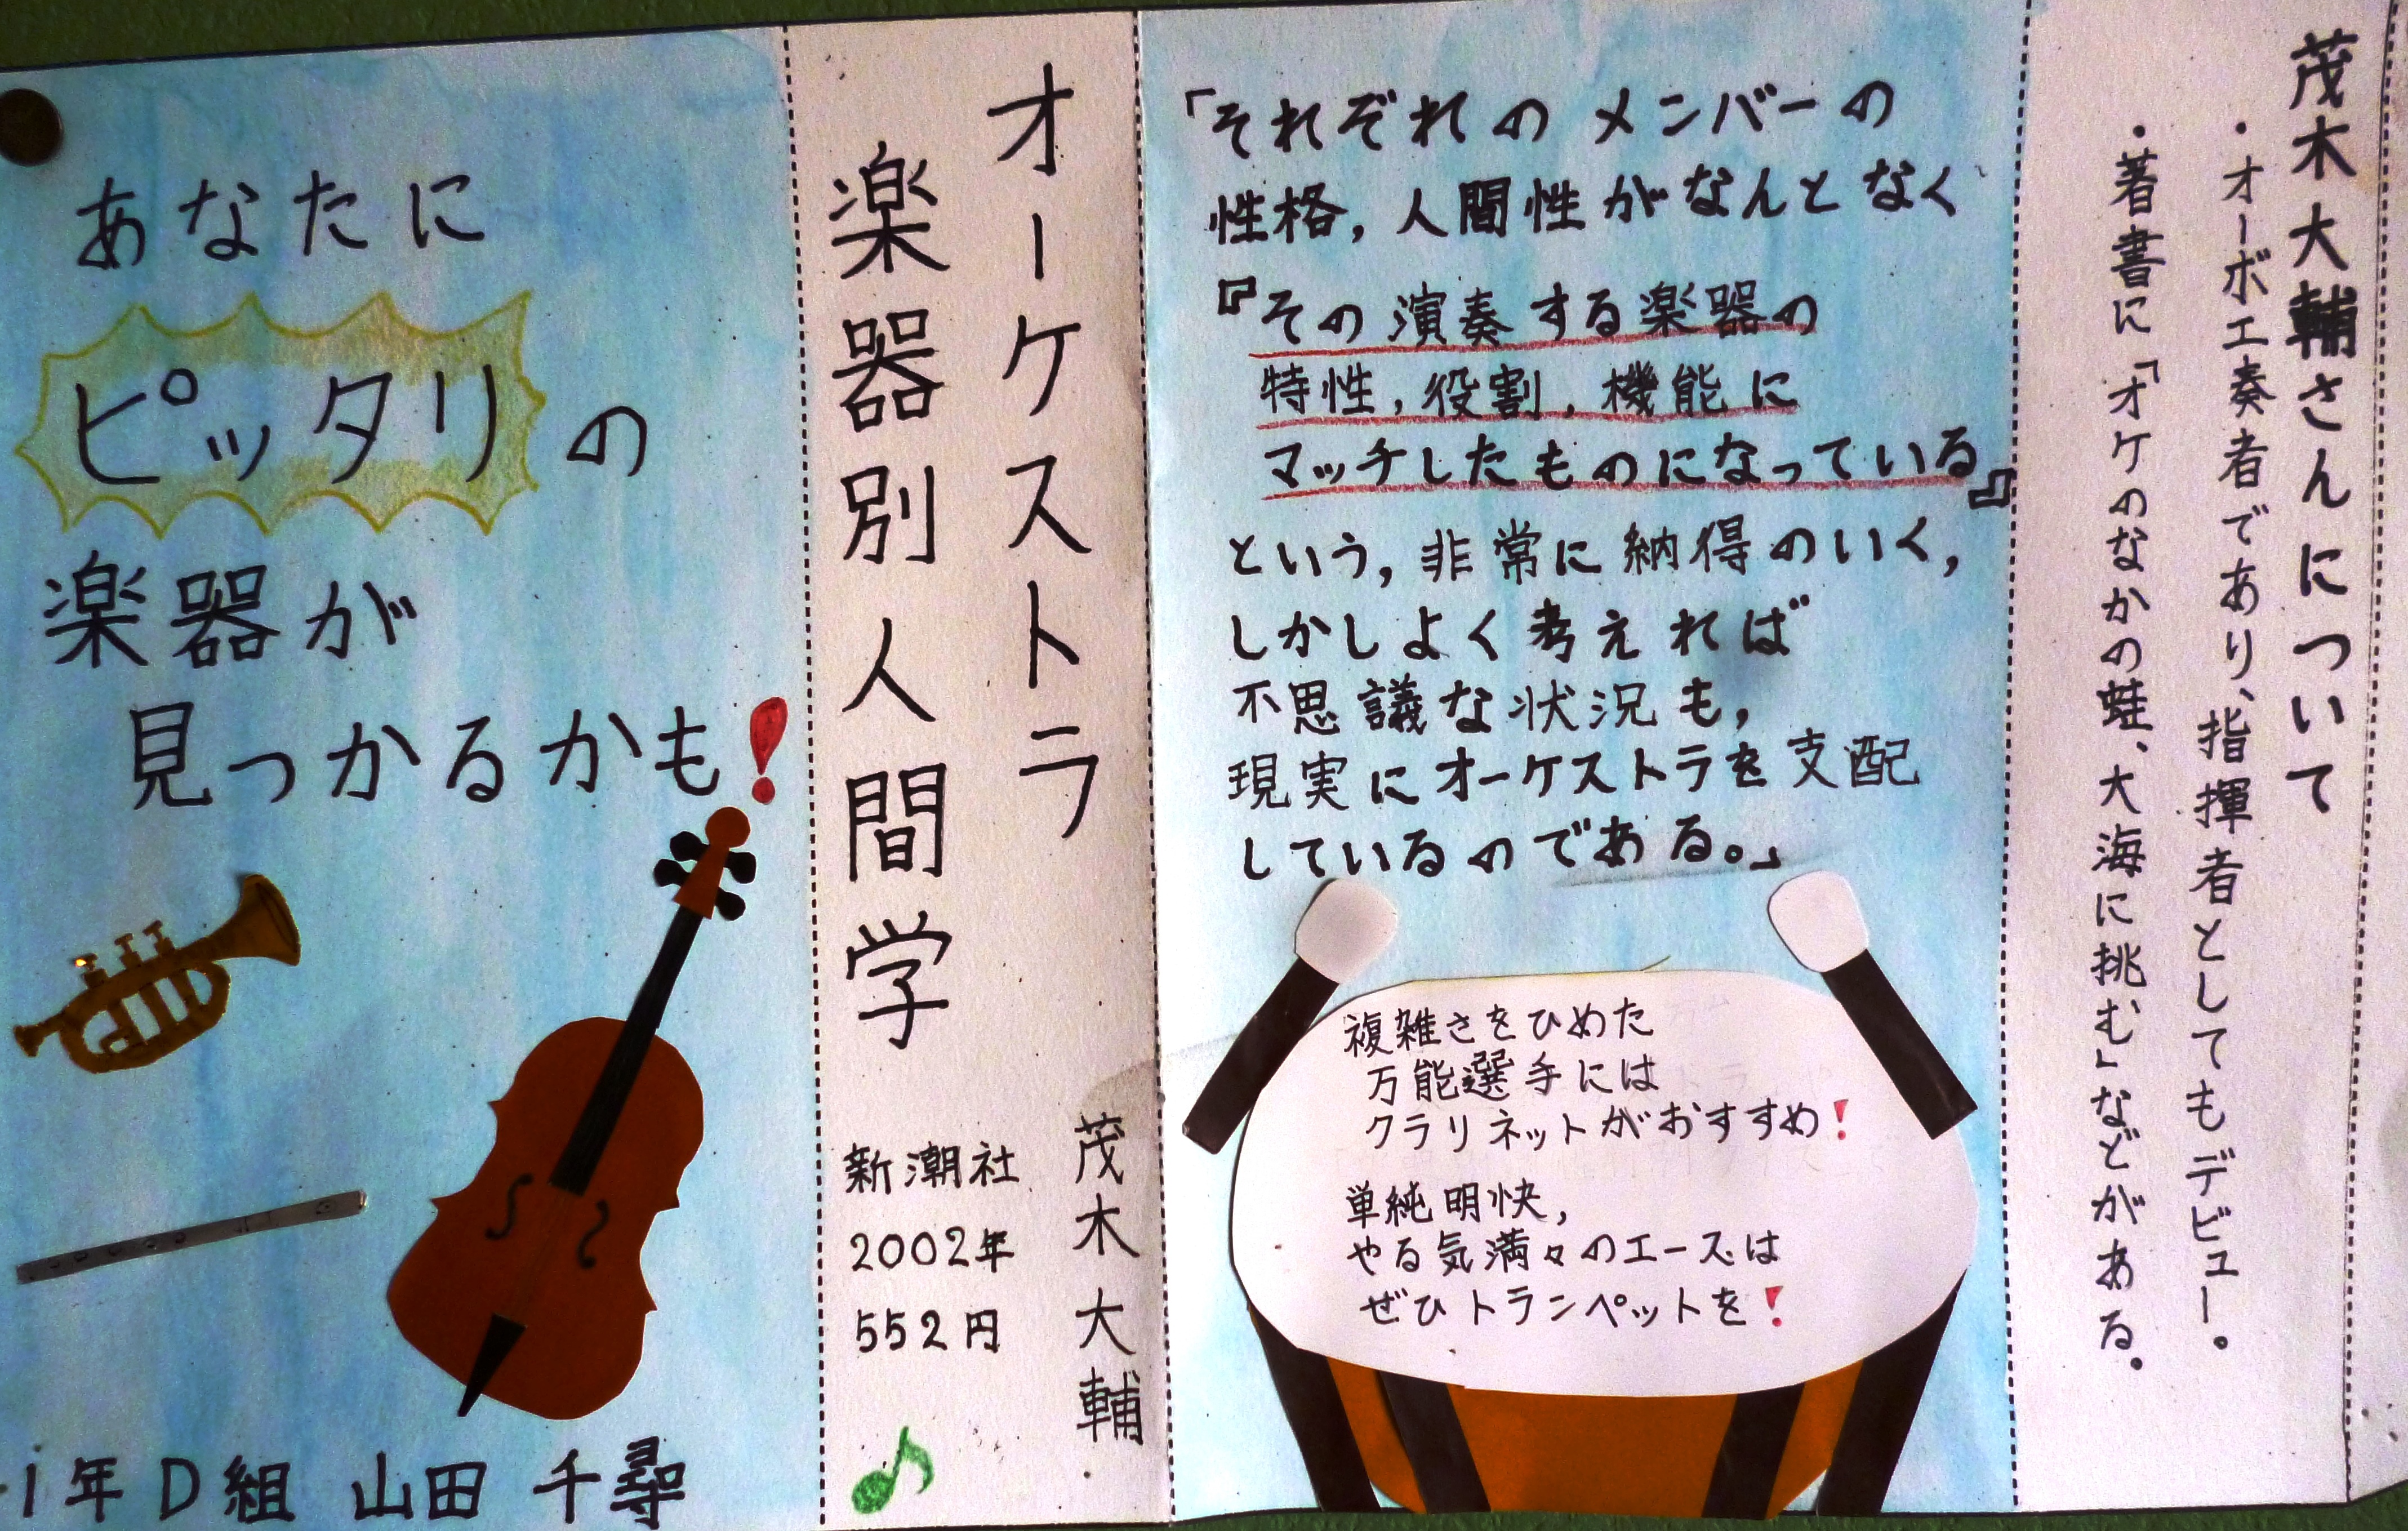 あなたに
ピッタリの
楽器が
見つかるかも!
1年D組 山田 千尋
オーケストラ
楽器別人間学
茂木大輔
新潮社
2002年
552円
「それぞれのメンバーの
性格,人間性がなんとなく
『その演奏する楽器の
特性,役割,機能に
マッチしたものになっている』
という,非常に納得のいく,
しかしよく考えれば
不思議な状況も,
現実にオーケストラを支配
しているのである。」
複雑さをひめた
万能選手には
クラリネットがおすすめ!
単純明快,
やる気満々のエースは
ぜひトランペットを!
茂木大輔さんについて
・オーボエ奏者であり、指揮者としてもデビュー。
・著書に「オケのなかの蛙、大海に挑む」などがある。